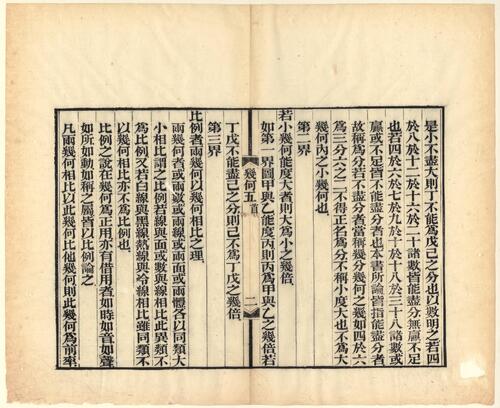 是小不盡大則丁不能爲戊己之分也以數明之若四
於八於十二於十六於二十諸數皆能盡分無贏不足
也若四於六於七於九於十於十八於三十八諸數或
贏或不足皆不能盡分者也本書所論皆指能盡分者
故稱爲分若不盡分者當稱幾分幾何之幾如四於六
爲三分六之二不得正名爲分不稱小度大也不爲大
幾何內之小幾何也
第二界
若小幾何能度大者則大爲小之幾倍
如第一界圖甲與乙能度丙則丙爲甲與乙之幾倍若
幾何五首
二
丁戊不能盡己之分則己不爲丁戊之幾倍
第三界
比例者兩幾何以幾何相比之理
兩幾何者或兩數或兩線或兩面或兩體各以同類大
小相比謂之比例若線與面或數與線相比此異類不
爲比例又若白線與黑線熱線與冷線相比雖同類不
以幾何相比亦不爲比例也
比例之說在幾何爲正用亦有借用者如時如音如聲
如所如動如稱之屬皆以比例論之
凡兩幾何相比以此幾何比他幾何則此幾何爲前率